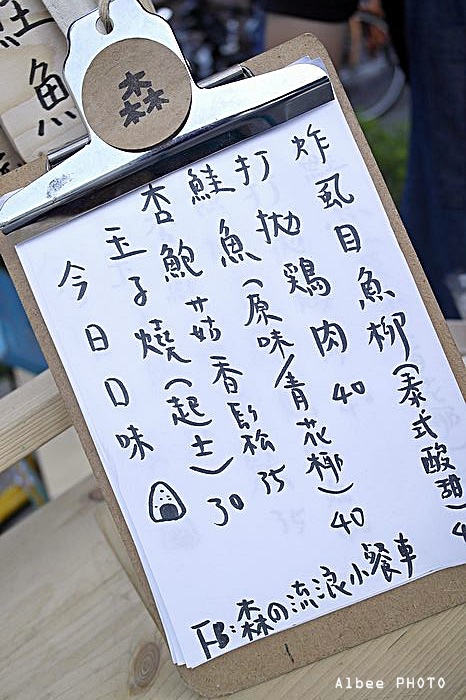 森
今日口味
玉子燒(起士) 30
杏鮑菇香鬆 35
鮭魚(原味/青花椰) 40
打拋鶏肉 40
炸虱目魚柳(泰式酸甜) 4
FB:森の流浪小餐車
鮭魚
Albee PHOTO